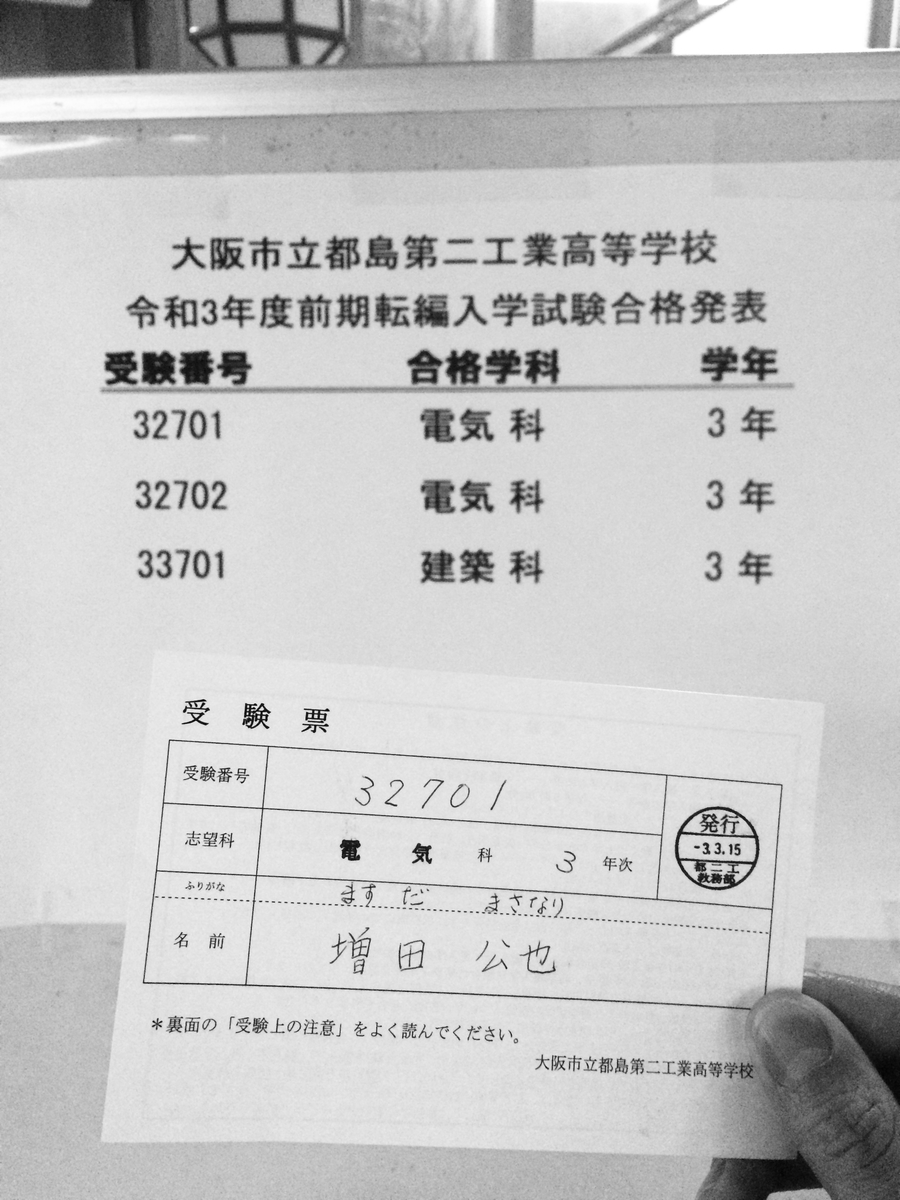 大阪市立都島第二工業高等学校
令和3年度前期転編入学試験合格発表
受験番号 合格学科 学年
32701 電気 科 3 年
32702 電気 科 3 年
33701 建築 科 3 年
受 験 票
受験番号 32701
志望科 電 気 科 3 年次
ふりがな ます だ まさなり
名 前 増田 公也
発行
-3.3.15
都二工
教務部
＊裏面の「受験上の注意」をよく読んでください。
大阪市立都島第二工業高等学校